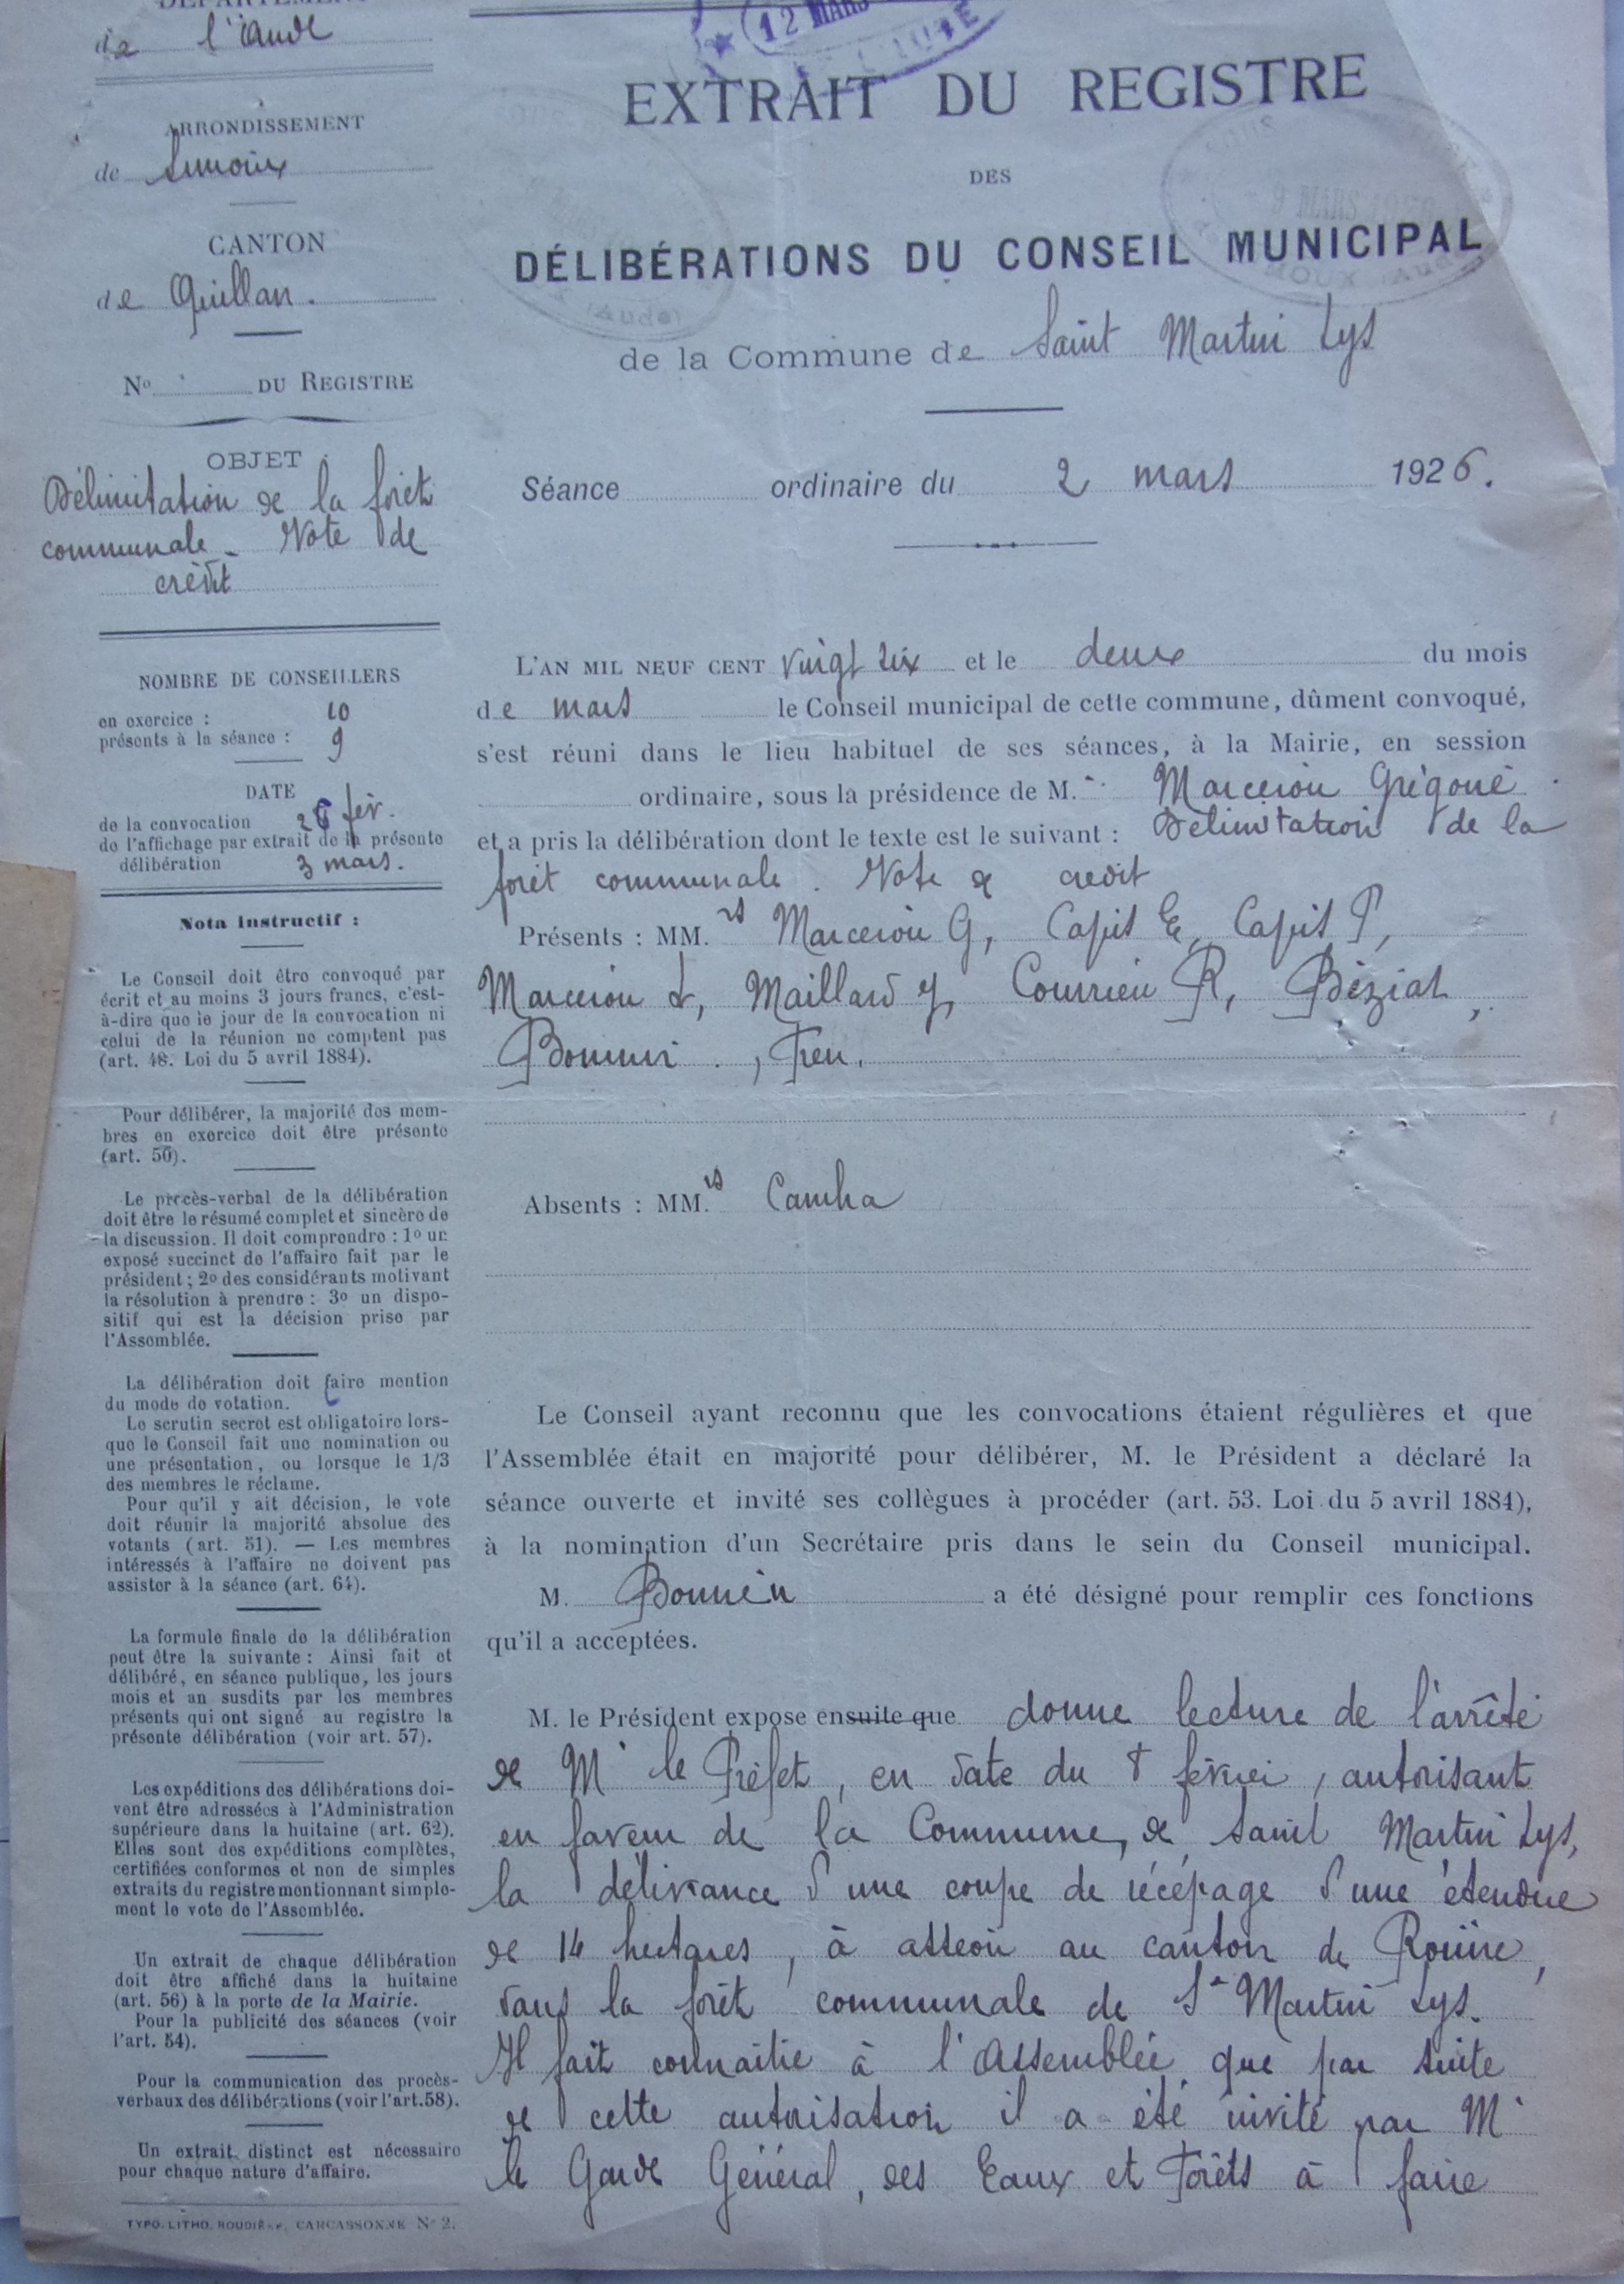 DÉPARTEMENT
de l'Aude
ARRONDISSEMENT
de Limoux
CANTON
de Quillan.
No DU REGISTRE
OBJET
Délimitation de la forêt
communale - Vote de
crédit
NOMBRE DE CONSEILLERS
en exercice : 10
présents à la séance : 9
DATE
de la convocation 26 fév.
de l'affichage par extrait de la présente
délibération 3 mars.
Nota Instructif :
Le Conseil doit être convoqué par
écrit et au moins 3 jours francs, c'est-
à-dire que le jour de la convocation ni
celui de la réunion ne comptent pas
(art. 48. Loi du 5 avril 1884).
Pour délibérer, la majorité des mem-
bres en exercice doit être présente
(art. 50).
Le procès-verbal de la délibération
doit être le résumé complet et sincère de
la discussion. Il doit comprendre : 1o un
exposé succinct de l'affaire fait par le
président ; 2o des considérants motivant
la résolution à prendre : 3o un dispo-
sitif qui est la décision prise par
l'Assemblée.
La délibération doit faire mention
du mode de votation.
Le scrutin secret est obligatoire lors-
que le Conseil fait une nomination ou
une présentation, ou lorsque le 1/3
des membres le réclame.
Pour qu'il y ait décision, le vote
doit réunir la majorité absolue des
votants (art. 51). — Les membres
intéressés à l'affaire ne doivent pas
assister à la séance (art. 64).
La formule finale de la délibération
peut être la suivante : Ainsi fait et
délibéré, en séance publique, les jours
mois et an susdits par les membres
présents qui ont signé au registre la
présente délibération (voir art. 57).
Les expéditions des délibérations doi-
vent être adressées à l'Administration
supérieure dans la huitaine (art. 62).
Elles sont des expéditions complètes,
certifiées conformes et non de simples
extraits du registre mentionnant simple-
ment le vote de l'Assemblée.
Un extrait de chaque délibération
doit être affiché dans la huitaine
(art. 56) à la porte de la Mairie.
Pour la publicité des séances (voir
l'art. 54).
Pour la communication des procès-
verbaux des délibérations (voir l'art.58).
Un extrait distinct est nécessaire
pour chaque nature d'affaire.
TYPO. LITHO. ROUDIÈRE, CARCASSONNE No 2.
12 MARS
EXTRAIT DU REGISTRE
DES
9 MARS
DÉLIBÉRATIONS DU CONSEIL MUNICIPAL
(Aude)
de la Commune de Saint Martin Lys
Séance ordinaire du 2 mars 1926.
L'AN MIL NEUF CENT vingt six et le deux du mois
de mars le Conseil municipal de cette commune, dûment convoqué,
s'est réuni dans le lieu habituel de ses séances, à la Mairie, en session
ordinaire, sous la présidence de M. Marcerou Grégoire
et a pris la délibération dont le texte est le suivant : Délimitation de la
forêt communale. Vote de crédit
Présents : MM.rs Marcerou G, Capis E, Capis P,
Marcerou L, Maillard J, Courrieu R, Béziat,
Bonnin, Freu.
Absents : MM.rs
Le Conseil ayant reconnu que les convocations étaient régulières et que
l'Assemblée était en majorité pour délibérer, M. le Président a déclaré la
séance ouverte et invité ses collègues à procéder (art. 53. Loi du 5 avril 1884),
à la nomination d'un Secrétaire pris dans le sein du Conseil municipal.
M. Bonnin a été désigné pour remplir ces fonctions
qu'il a acceptées.
M. le Président expose ensuite que donne lecture de l'arrêté
de Mr le Préfet, en date du 8 février, autorisant
en faveur de la Commune, de Saint Martin Lys,
la délivrance d'une coupe de récépage d'une étendue
de 14 hectares, à asseoir au canton de Rouïre,
dans la forêt communale de St Martin Lys.
Il fait connaître à l'Assemblée que par suite
de cette autorisation il a été invité par Mr
le Garde Général, des Eaux et Forêts à faire